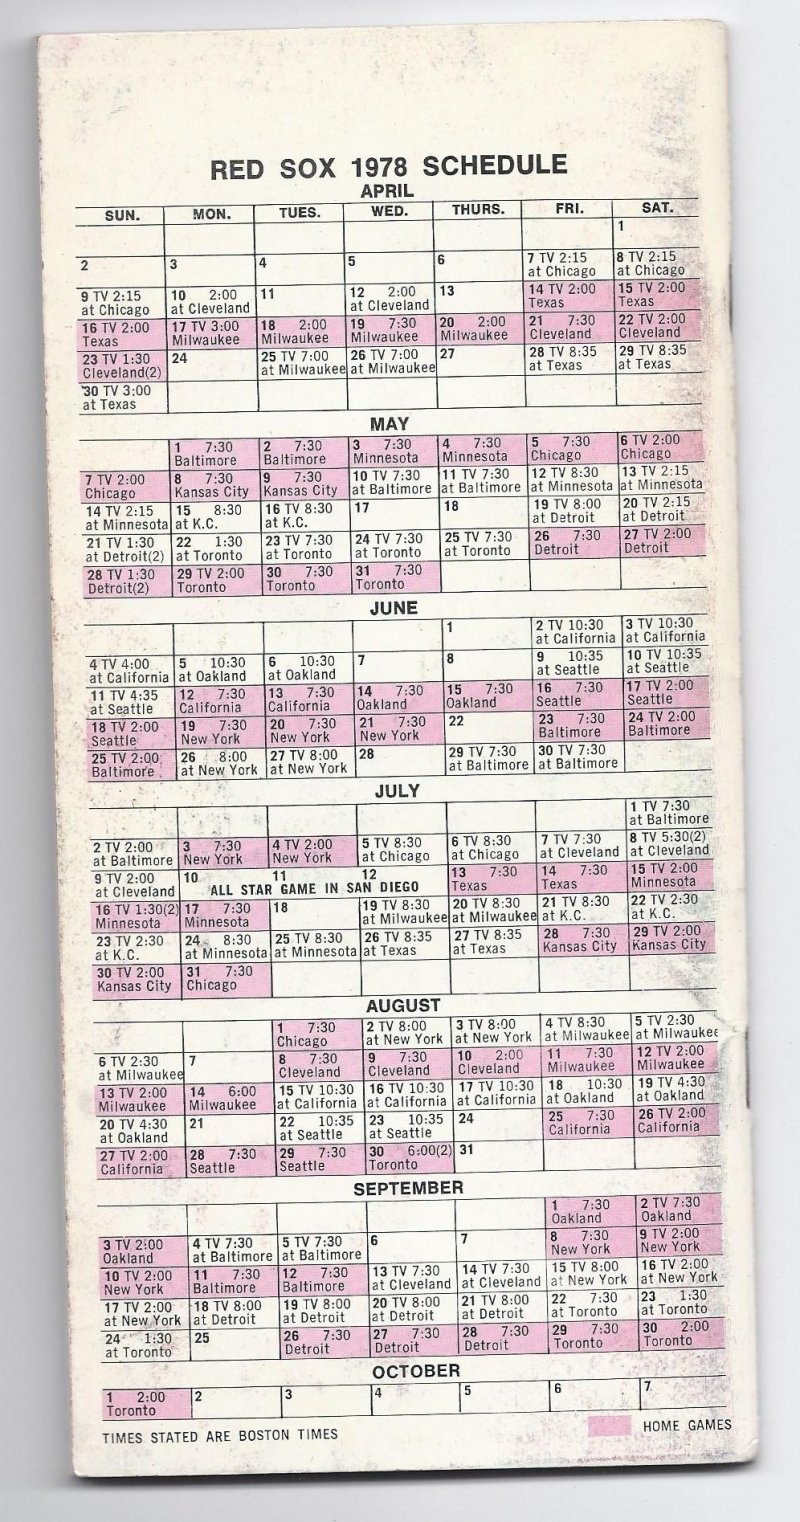 RED SOX 1978 SCHEDULE
APRIL
SUN. MON. TUES. WED. THURS. FRI. SAT.
1
2 3 4 5 6 7 TV 2:15 8 TV 2:15
at Chicago at Chicago
9 TV 2:15 10 2:00 11 12 2:00 13 14 TV 2:00 15 TV 2:00
at Chicago at Cleveland at Cleveland Texas Texas
16 TV 2:00 17 TV 3:00 18 2:00 19 7:30 20 2:00 21 7:30 22 TV 2:00
Texas Milwaukee Milwaukee Milwaukee Milwaukee Cleveland Cleveland
23 TV 1:30 24 25 TV 7:00 26 TV 7:00 27 28 TV 8:35 29 TV 8:35
Cleveland(2) at Milwaukee at Milwaukee at Texas at Texas
30 TV 3:00
at Texas
MAY
1 7:30 2 7:30 3 7:30 4 7:30 5 7:30 6 TV 2:00
Baltimore Baltimore Minnesota Minnesota Chicago Chicago
7 TV 2:00 8 7:30 9 7:30 10 TV 7:30 11 TV 7:30 12 TV 8:30 13 TV 2:15
Chicago Kansas City Kansas City at Baltimore at Baltimore at Minnesota at Minnesota
14 TV 2:15 15 8:30 16 TV 8:30 17 18 19 TV 8:00 20 TV 2:15
at Minnesota at K.C. at K.C. at Detroit at Detroit
21 TV 1:30 22 1:30 23 TV 7:30 24 TV 7:30 25 TV 7:30 26 7:30 27 TV 2:00
at Detroit(2) at Toronto at Toronto at Toronto at Toronto Detroit Detroit
28 TV 1:30 29 TV 2:00 30 7:30 31 7:30
Detroit(2) Toronto Toronto Toronto
JUNE
1 2 TV 10:30 3 TV 10:30
at California at California
4 TV 4:00 5 10:30 6 10:30 7 8 9 10:35 10 TV 10:35
at California at Oakland at Oakland at Seattle at Seattle
11 TV 4:35 12 7:30 13 7:30 14 7:30 15 7:30 16 7:30 17 TV 2:00
at Seattle California California Oakland Oakland Seattle Seattle
18 TV 2:00 19 7:30 20 7:30 21 7:30 22 23 7:30 24 TV 2:00
Seattle New York New York New York Baltimore Baltimore
25 TV 2:00 26 8:00 27 TV 8:00 28 29 TV 7:30 30 TV 7:30
Baltimore at New York at New York at Baltimore at Baltimore
JULY
1 TV 7:30
at Baltimore
2 TV 2:00 3 7:30 4 TV 2:00 5 TV 8:30 6 TV 8:30 7 TV 7:30 8 TV 5:30(2)
at Baltimore New York New York at Chicago at Chicago at Cleveland at Cleveland
9 TV 2:00 10 11 12 13 7:30 14 7:30 15 TV 2:00
at Cleveland ALL STAR GAME IN SAN DIEGO Texas Texas Minnesota
16 TV 1:30(2) 17 7:30 18 19 TV 8:30 20 TV 8:30 21 TV 8:30 22 TV 2:30
Minnesota Minnesota at Milwaukee at Milwaukee at K.C. at K.C.
23 TV 2:30 24 8:30 25 TV 8:30 26 TV 8:35 27 TV 8:35 28 7:30 29 TV 2:00
at K.C. at Minnesota at Minnesota at Texas at Texas Kansas City Kansas City
30 TV 2:00 31 7:30
Kansas City Chicago
AUGUST
1 7:30 2 TV 8:00 3 TV 8:00 4 TV 8:30 5 TV 2:30
Chicago at New York at New York at Milwaukee at Milwaukee
6 TV 2:30 7 8 7:30 9 7:30 10 2:00 11 7:30 12 TV 2:00
at Milwaukee Cleveland Cleveland Cleveland Milwaukee Milwaukee
13 TV 2:00 14 6:00 15 TV 10:30 16 TV 10:30 17 TV 10:30 18 10:30 19 TV 4:30
Milwaukee Milwaukee at California at California at California at Oakland at Oakland
20 TV 4:30 21 22 10:35 23 10:35 24 25 7:30 26 TV 2:00
at Oakland at Seattle at Seattle California California
27 TV 2:00 28 7:30 29 7:30 30 6:00(2) 31
California Seattle Seattle Toronto
SEPTEMBER
1 7:30 2 TV 7:30
Oakland Oakland
3 TV 2:00 4 TV 7:30 5 TV 7:30 6 7 8 7:30 9 TV 2:00
Oakland at Baltimore at Baltimore New York New York
10 TV 2:00 11 7:30 12 7:30 13 TV 7:30 14 TV 7:30 15 TV 8:00 16 TV 2:00
New York Baltimore Baltimore at Cleveland at Cleveland at New York at New York
17 TV 2:00 18 TV 8:00 19 TV 8:00 20 TV 8:00 21 TV 8:00 22 7:30 23 1:30
at New York at Detroit at Detroit at Detroit at Detroit at Toronto at Toronto
24 1:30 25 26 7:30 27 7:30 28 7:30 29 7:30 30 2:00
at Toronto Detroit Detroit Detroit Toronto Toronto
OCTOBER
1 2:00 2 3 4 5 6 7
Toronto
TIMES STATED ARE BOSTON TIMES HOME GAMES